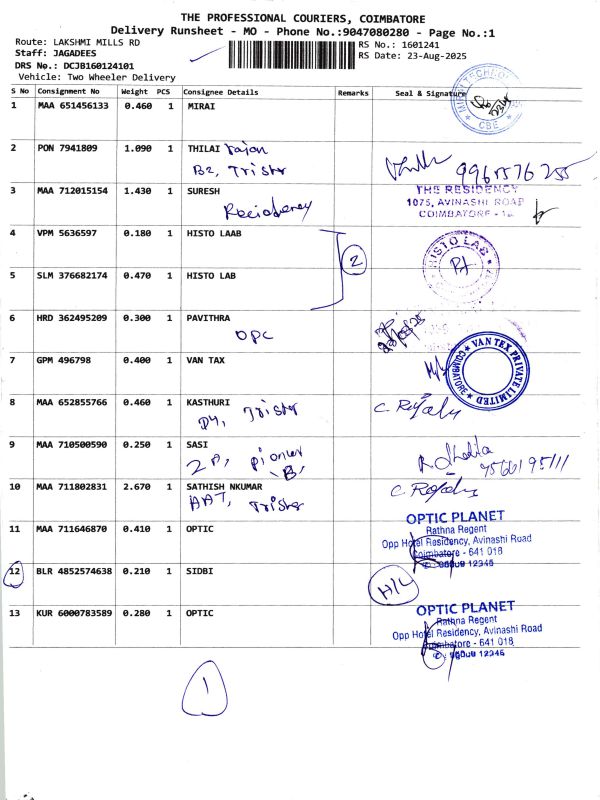 THE PROFESSIONAL COURIERS, COIMBATORE
Delivery Runsheet - MO - Phone No.:9047080280 - Page No.:1
Route: LAKSHMI MILLS RD
Staff: JAGADEES
DRS No.: DCJB160124101
Vehicle: Two Wheeler Delivery
RS No.: 1601241
RS Date: 23-Aug-2025
S No Consignment No Weight PCS Consignee Details Remarks Seal & Signature
1 MAA 651456133 0.460 1 MIRAI
CBE
2 PON 7941809 1.090 1 THILAI rajan
B2, Trister
3 MAA 712015154 1.430 1 SURESH
Residency
THE RESIDENCY
1075, AVINASHI ROAD
COIMBATORE - 18
4 VPM 5636597 0.180 1 HISTO LAAB
2
HISTO LAB
5 SLM 376682174 0.470 1 HISTO LAB
6 HRD 362495209 0.300 1 PAVITHRA
OPC
7 GPM 496798 0.400 1 VAN TAX
VAN TEX PRIVATE LIMITED
COIMBATORE
8 MAA 652855766 0.460 1 KASTHURI
D4, Trister
9 MAA 710500590 0.250 1 SASI
2A, pioneer
"B"
10 MAA 711802831 2.670 1 SATHISH NKUMAR
AAT, Trister
11 MAA 711646870 0.410 1 OPTIC
OPTIC PLANET
Rathna Regent
Opp Hotel Residency, Avinashi Road
Coimbatore - 641 018
12 BLR 4852574638 0.210 1 SIDBI
H/L
13 KUR 6000783589 0.280 1 OPTIC
OPTIC PLANET
Rathna Regent
Opp Hotel Residency, Avinashi Road
Coimbatore - 641 018
1